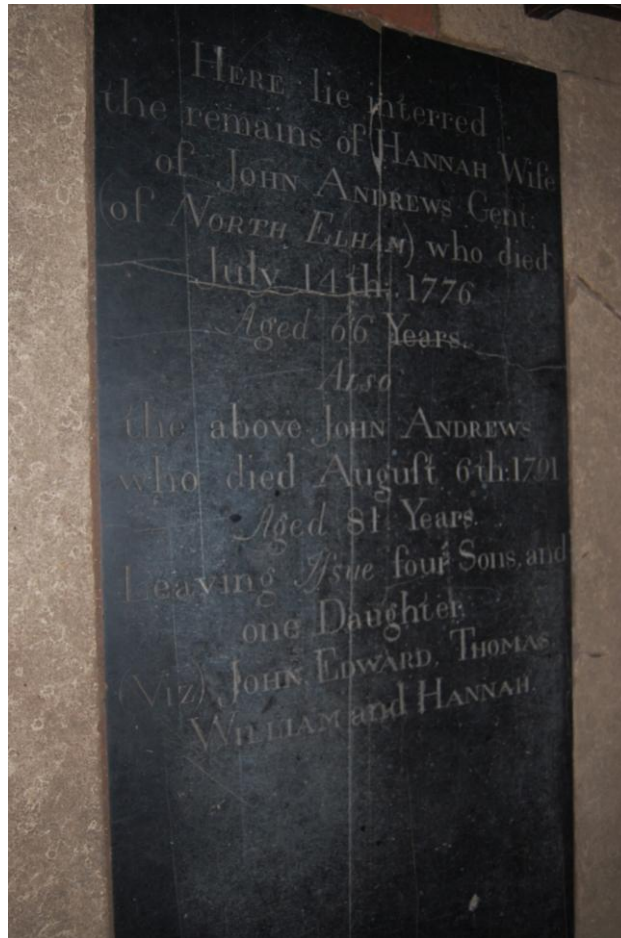 HERE lie interred
the remains of HANNAH Wife
of JOHN ANDREWS Gent:
(of NORTH ELHAM) who died
July 14th: 1776
Aged 66 Years.
ALSO
the above JOHN ANDREWS
who died Auguſt 6th: 1791
Aged 81 Years.
Leaving Iſsue four Sons, and
one Daughter,
(Viz) JOHN, EDWARD, THOMAS,
WILLIAM and HANNAH.